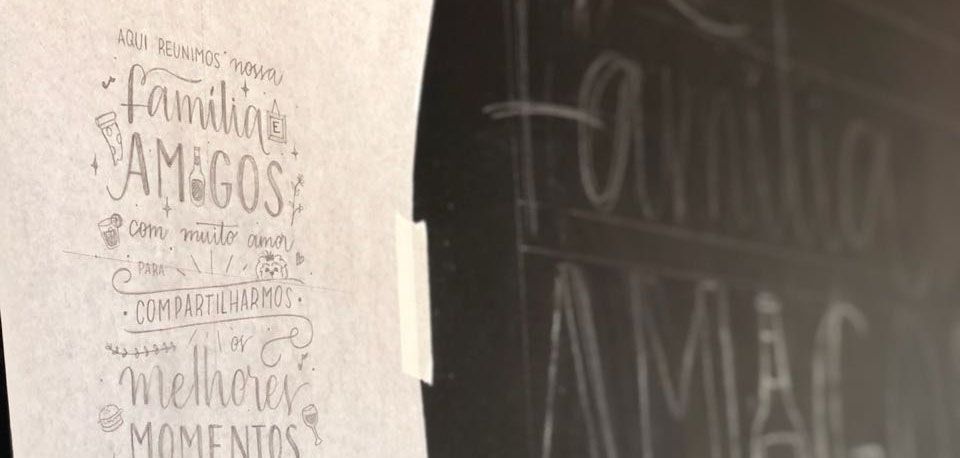 AQUI REUNIMOS nossa
família E
AMIGOS
com muito amor
PARA
COMPARTILHARMOS
os
melhores
MOMENTOS
família
AMIGO